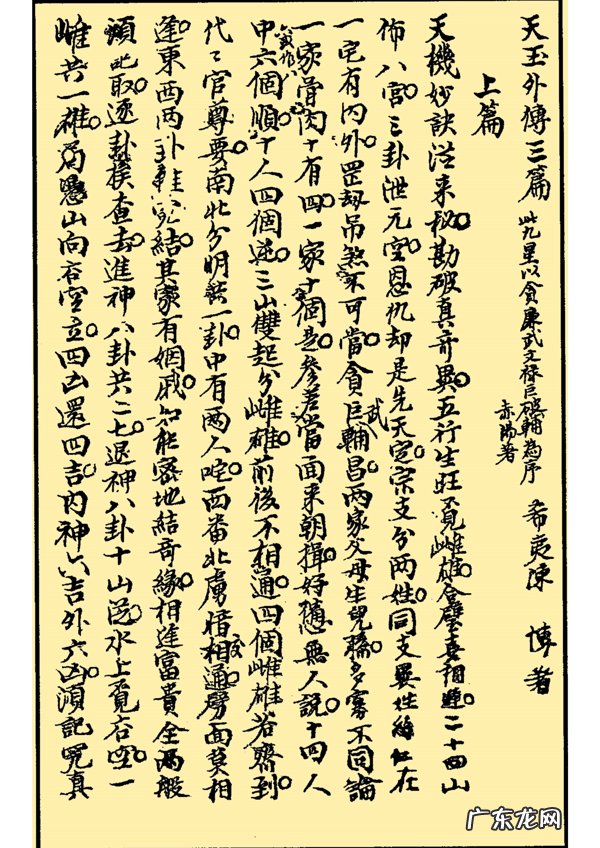 天玉外傳三篇 此九星以貪廉武文祿巨破輔為序 希夷陳 博著
赤陽著
上篇
天機妙訣從來秘。勘破真奇異。五行生旺覓雌雄。合璧喜相逢。二十四山
佈八宮。三卦泄元空。恩仇却是先天定。宗支分兩姓。同支異姓在
一宅有內外。罡劫吊煞不可當。貪巨輔武昌。兩家父母生兒孫。多寡不同論
一家骨肉十有四。一家十個是。參差當面來朝揖。好德無人說。十四人
六或作八
中六個順。十人四個逆。三山雙起分雌雄。前後不相通。四個雌雄若齊到。
代代官尊要。南北分明共一卦。中有兩人。西番北虜暗相通。劈面莫相
逢。東西兩卦結。其家有姻戚。知能密地結奇緣。相逢富貴全。兩般
須此取。逐卦挨查去。進神八卦共二七。退神八卦十。山水上覓空。一
雌共一雄。局懸山向空立。四凶還四吉。內神六吉外六凶。須記究真
广东龙网